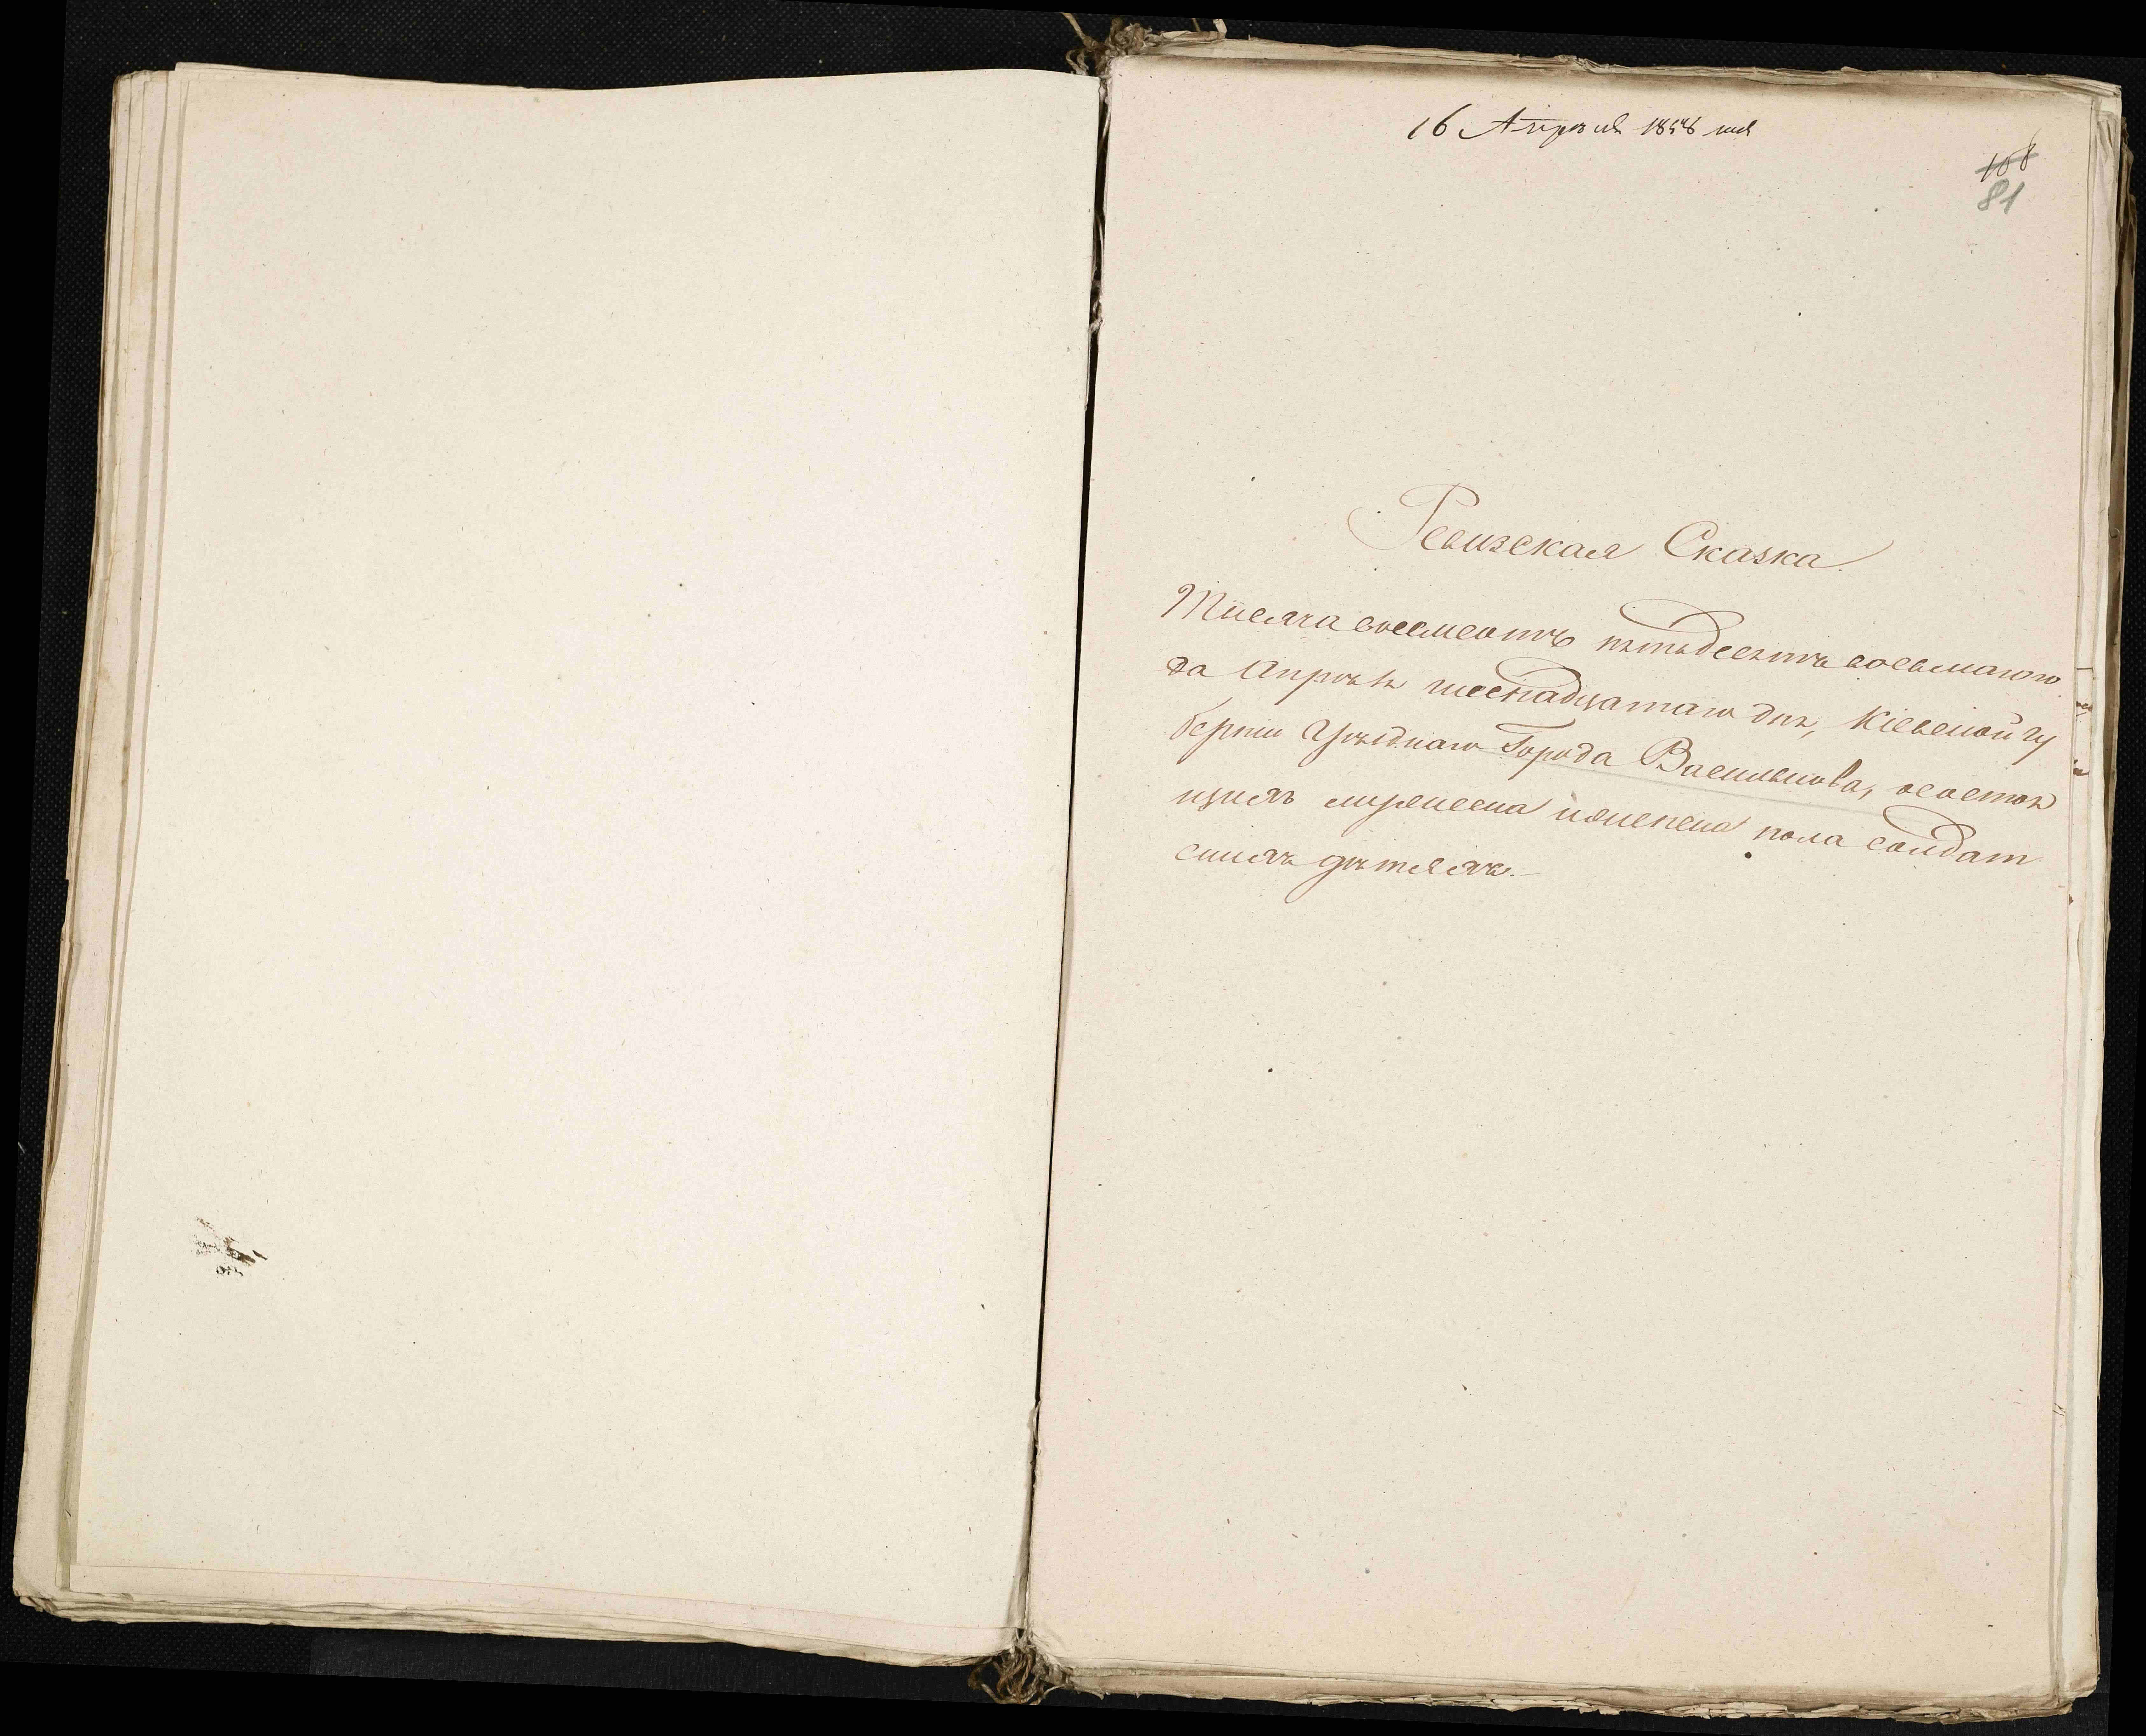 16 Апрѣля 1858 года
108
81
Ревизская Сказка.
Тысяча восемсотъ пятьдесятъ восьмаго го
да Апрѣля шеснадцатаго дня, Кіевской гу
берніи Уѣзднаго Города Василькова, о состоя
щихъ мужеска и женска пола солдат
скихъ дѣтяхъ.